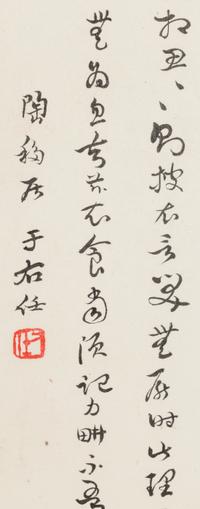 相思〻〻則披衣言笑無厭時此理
無為忽去茲衣食當須記力畊不吾
陶移居 于右任